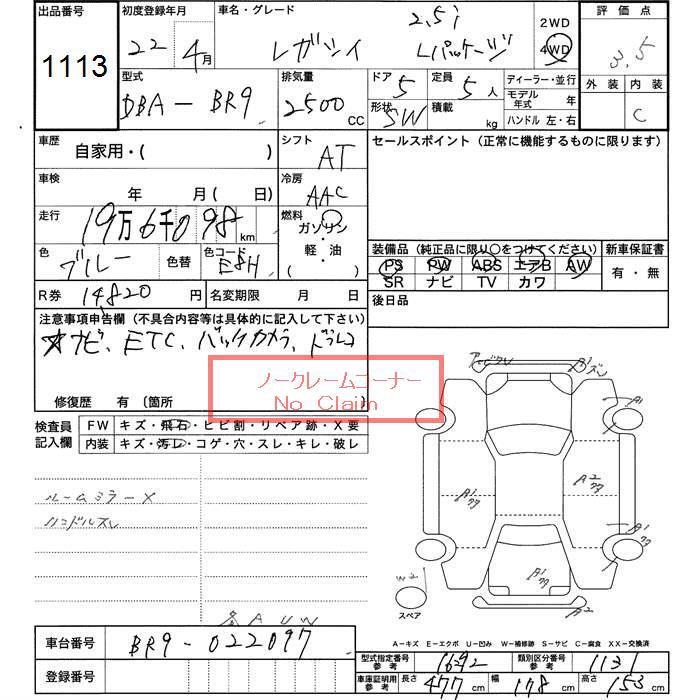 出品番号
1113
初度登録年月
22年4月
車名・グレード
レガシィ
2.5i
Lパッケージ
2WD
4WD
評価点
3.5
外装
内装
C
型式
DBA-BR9
排気量
2500
CC
ドア
5
定員
5人
形状
SW
積載
kg
ディーラー・並行
モデル年式
年
ハンドル 左・右
車歴
自家用・( )
シフト
AT
セールスポイント(正常に機能するものに限ります)
車検
年 月( 日)
冷房
AAC
走行
19万6千098km
燃料
ガソリン
・
軽・油
( )
色
ブルー
色替
色コード
E8H
装備品(純正品に限り○をつけてください)
新車保証書
PS PW ABS エアB AW
SR ナビ TV カワ
有・無
R券
14820円
名変期限
月 日
後日品
注意事項申告欄(不具合内容等は具体的に記入して下さい)
ナビ、ETC、バックカメラ、ドラレコ
ノークレームコーナー
No Claim
修復歴 有(箇所 )
検査員
記入欄
FW
キズ・飛石・ヒビ割・リペア跡・X要
内装
キズ・汚レ・コゲ・穴・スレ・キレ・破レ
ルームミラーX
ハンドルスレ
A1
ズレ
A1
A1
77
A2
77
A1
77
A1
77
A2
W2
スペア
A U W
車台番号
BR9-022097
登録番号
A-キズ E-エクボ U-凹み W-補修跡 S-サビ C-腐食 XX-交換済
型式指定番号
参考
1692
類別区分番号
参考
1131
車庫証明用
参考
長さ
477cm
幅
178cm
高さ
153cm